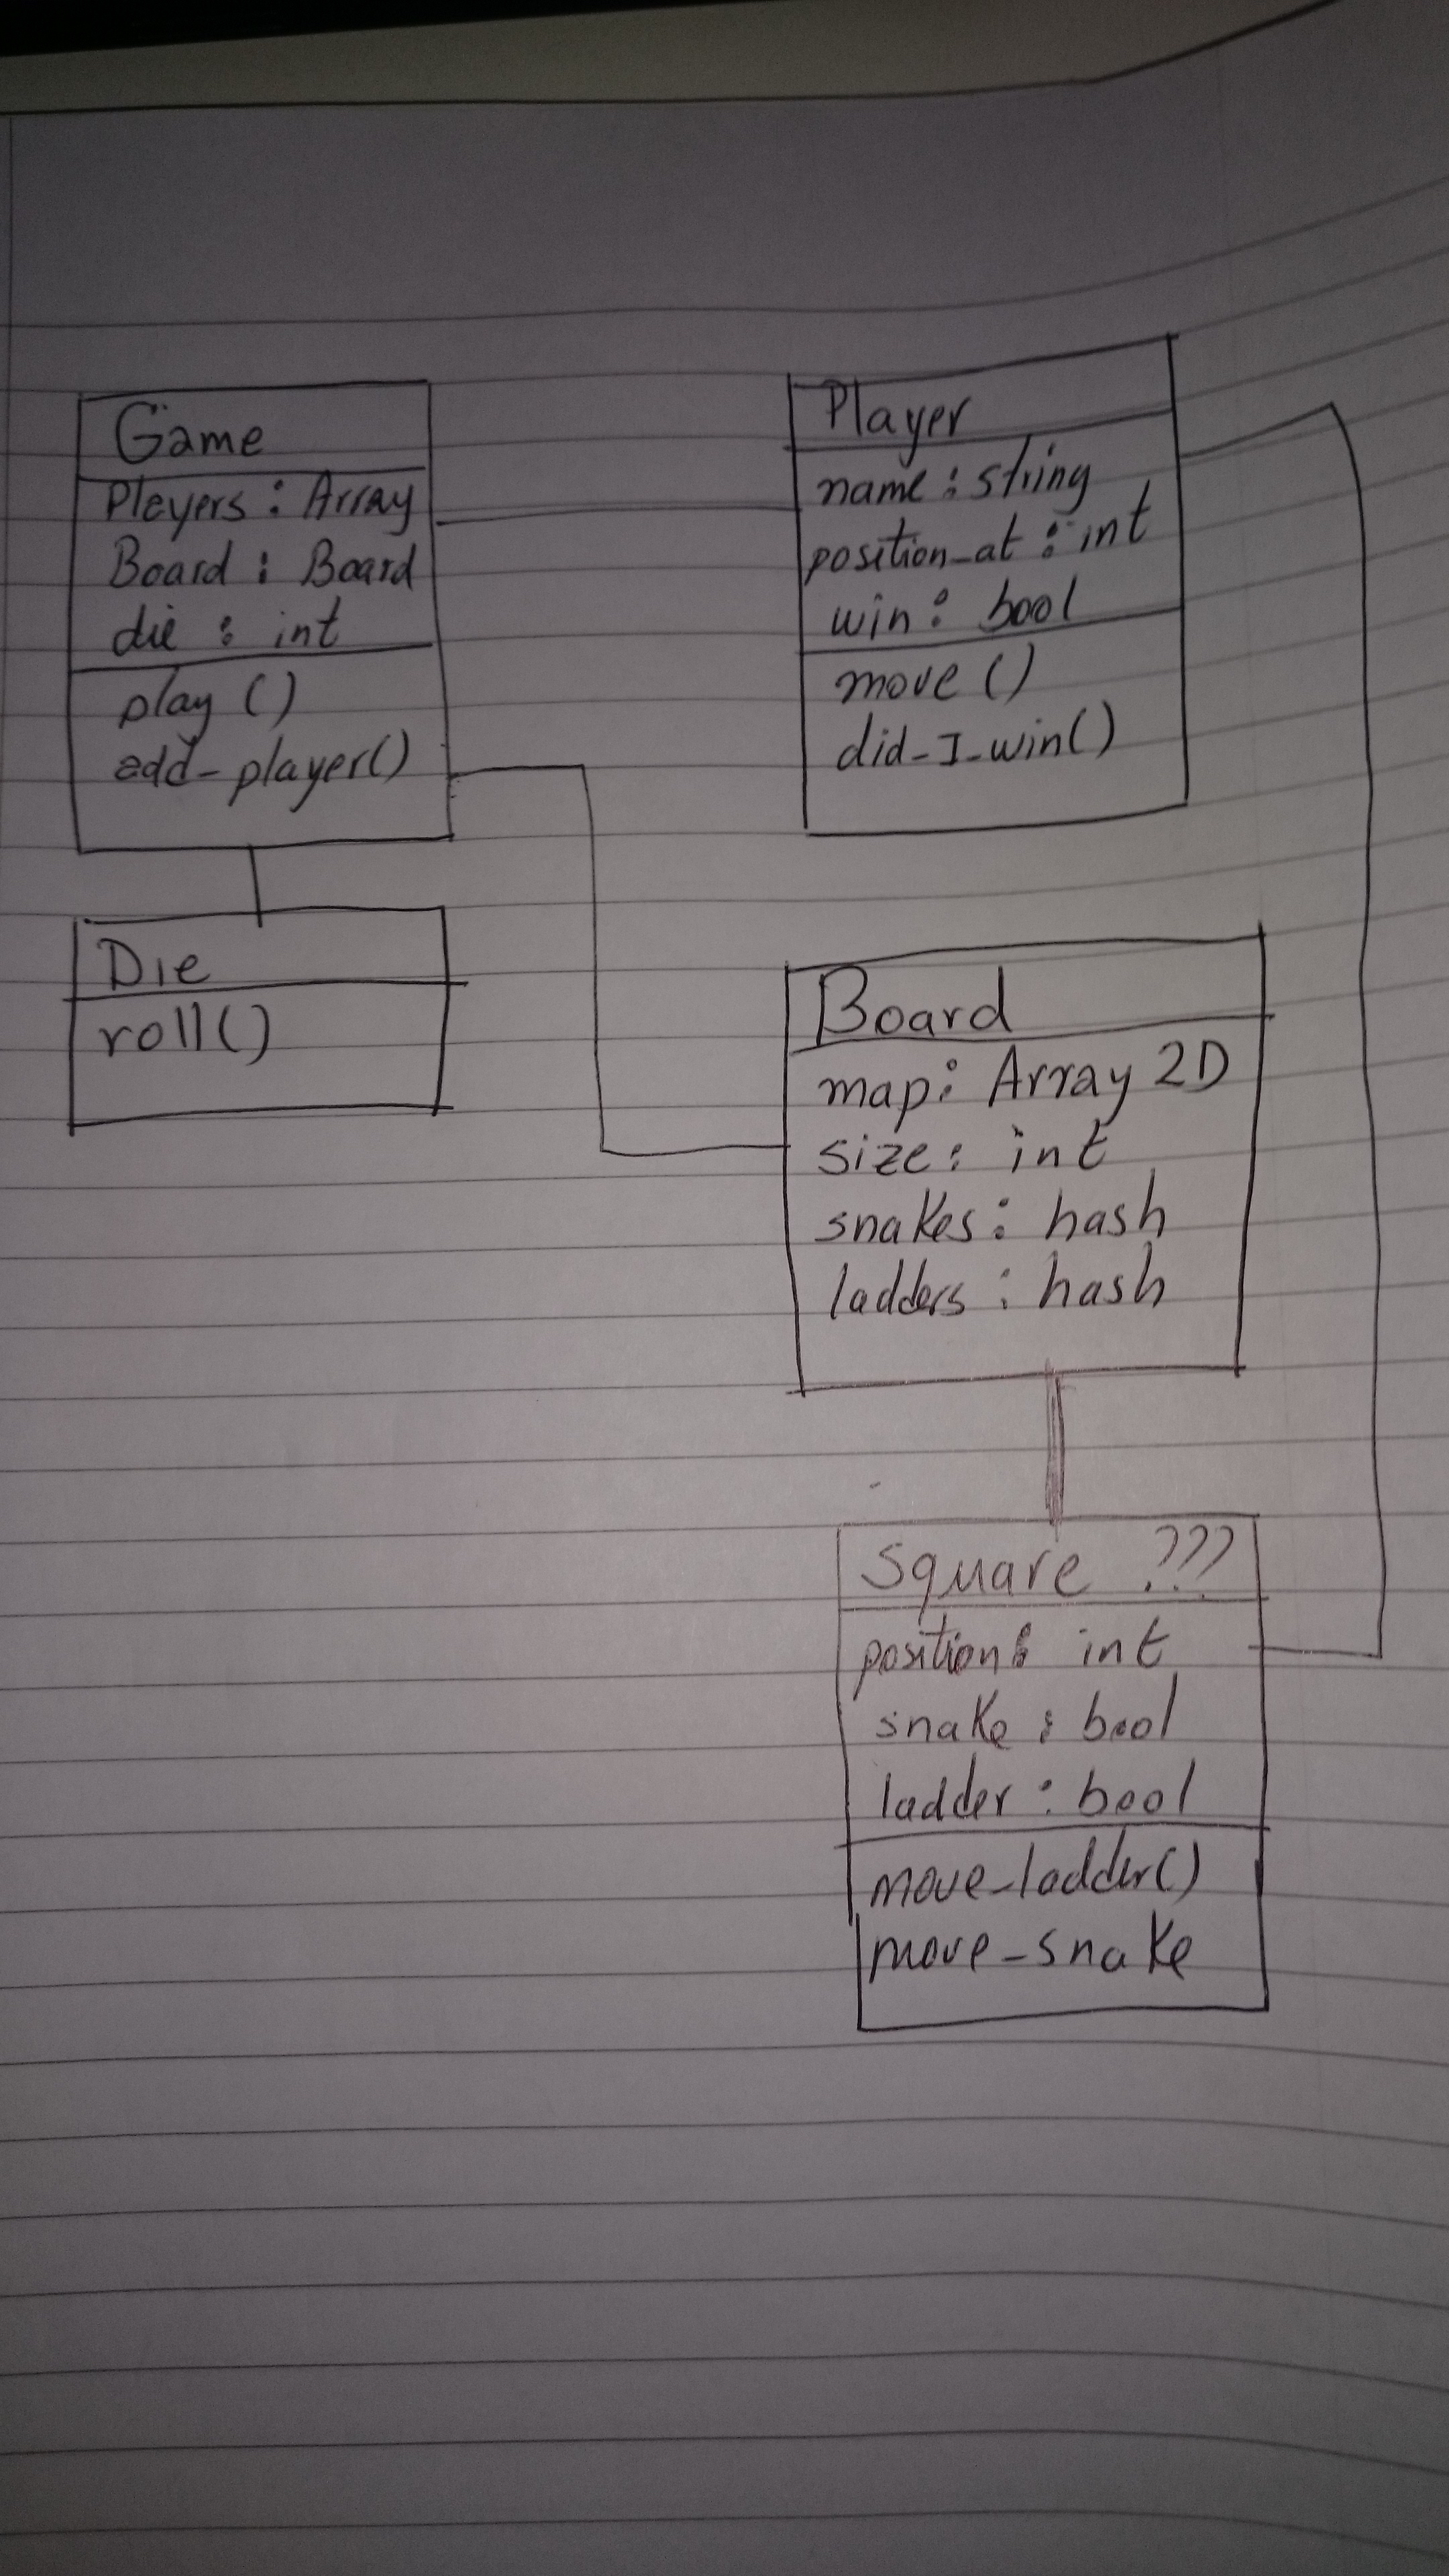 Game
Pleyers : Array
Board : Board
die : int
play ()
add_player()
Die
roll()
Player
name : string
position_at : int
win : bool
move ()
did_I_win()
Board
map : Array 2D
size : int
snakes : hash
ladders : hash
Square ???
position : int
snake : bool
ladder : bool
move_ladder()
move_snake